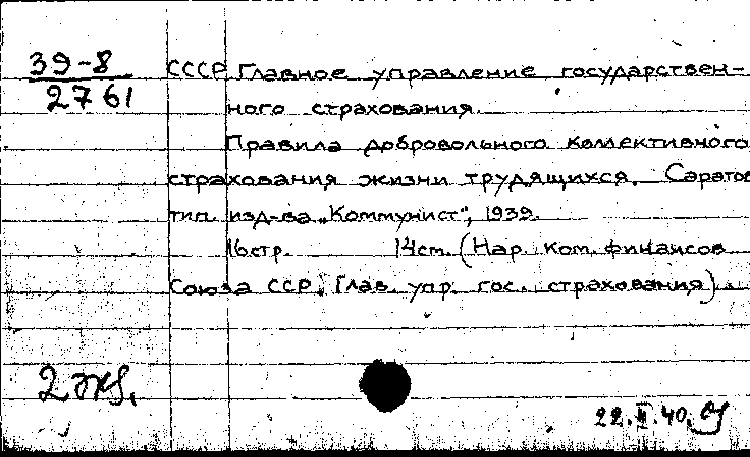 39-8
2761
СССР. Главное управление государствен-
ного страхования.
Правила добровольного коллективного
страхования жизни трудящихся. Саратов
тип. изд-ва „Коммунист", 1939.
16 стр. 14 см. (Нар. ком. финансов
Союза ССР. Глав. упр. гос. страхования).
2 экз.
22.II.40.